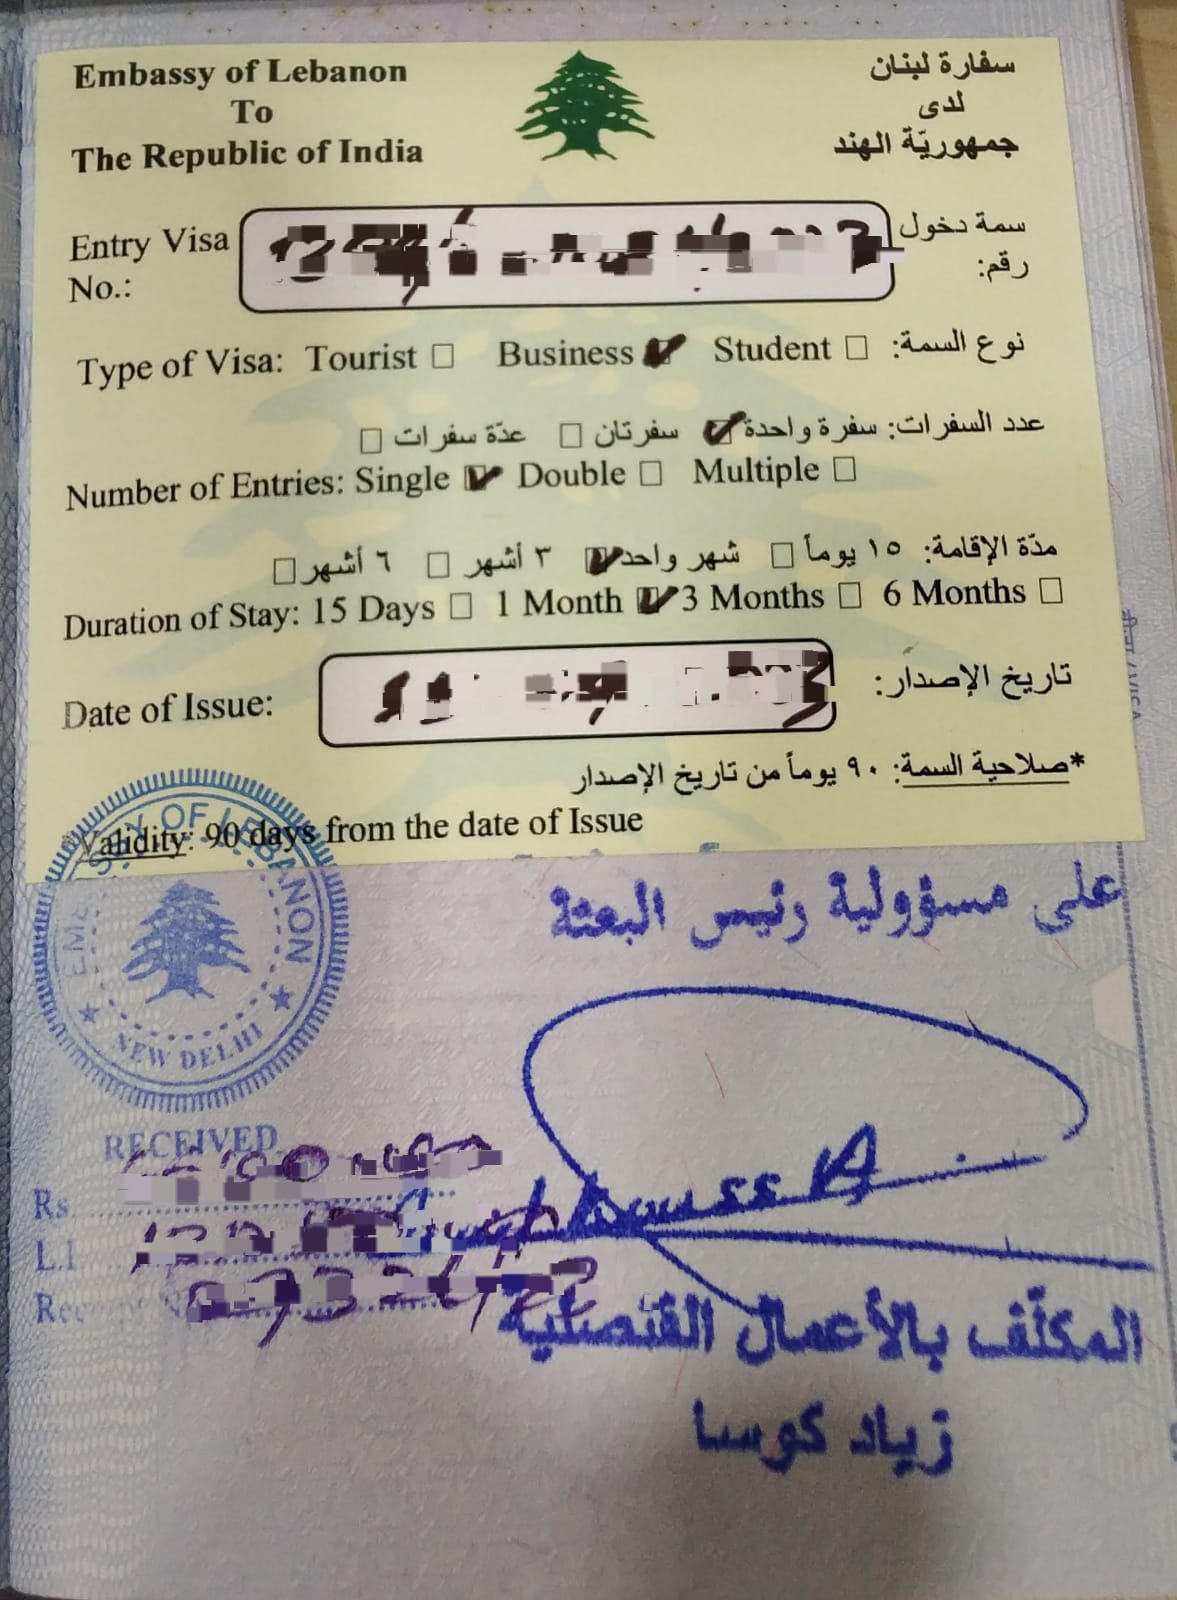 Embassy of Lebanon
To
The Republic of India
سفارة لبنان
لدى
جمهوريّة الهند
Entry Visa
No.:
سمة دخول
رقم:
Type of Visa: Tourist ☐ Business ☑ Student ☐ نوع السمة:
عدد السفرات: سفرة واحدة ☑ سفرتان ☐ عدّة سفرات ☐
Number of Entries: Single ☑ Double ☐ Multiple ☐
مدّة الإقامة: ١٥ يوماً ☐ شهر واحد ☑ ٣ أشهر ☐ ٦ أشهر ☐
Duration of Stay: 15 Days ☐ 1 Month ☑ 3 Months ☐ 6 Months ☐
Date of Issue: تاريخ الإصدار:
*صلاحية السمة: ٩٠ يوماً من تاريخ الإصدار
*Validity: 90 days from the date of Issue
EMBASSY OF LEBANON
NEW DELHI
على مسؤولية رئيس البعثة
RECEIVED
Rs
L.l
المكلّف بالأعمال القنصلية
زياد كوسا